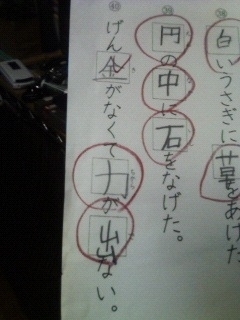 白いうさぎに草をあげた
円の中に石をなげた。
げん金がなくて力が出ない。